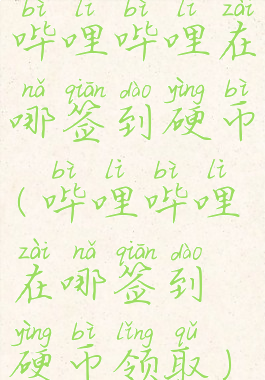 bì lī bì lī zài
哔哩哔哩在
nǎ qiān dào yìng bì
哪签到硬币
bì lī bì lī
(哔哩哔哩
zài nǎ qiān dào
在哪签到
yìng bì lǐng qǔ
硬币领取)